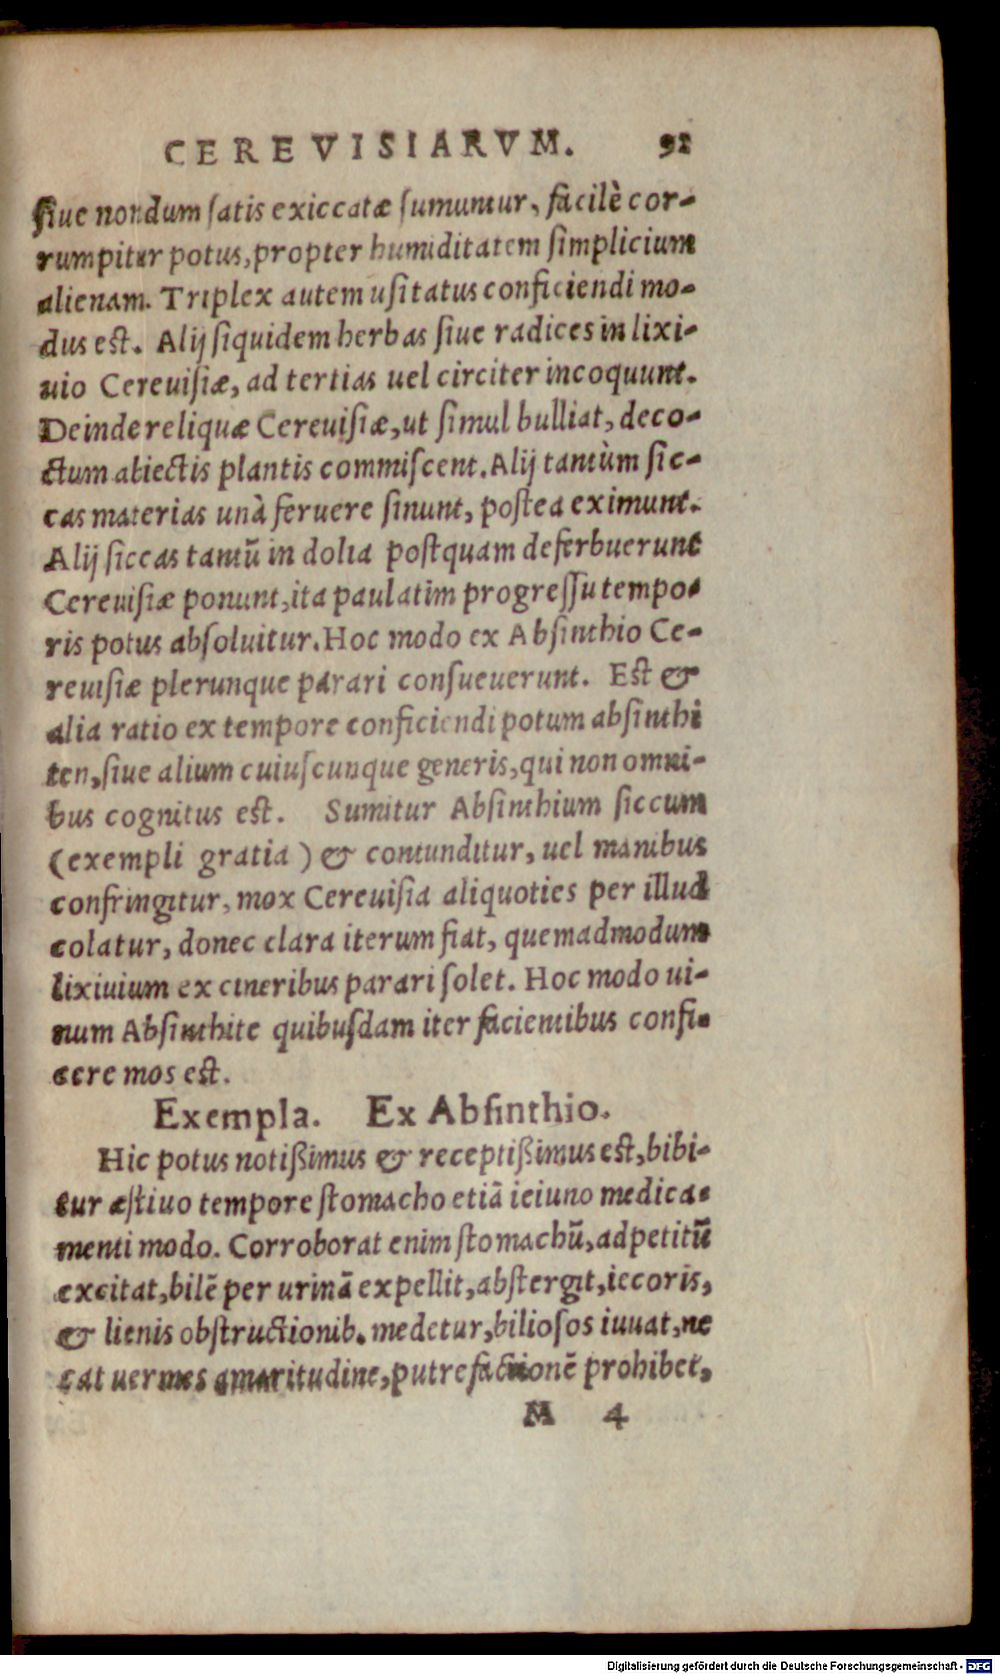 CEREVISIARVM. 92
ſiue nondum ſatis exiccatæ ſumuntur, facilè cor-
rumpitur potus, propter humiditatem ſimplicium
alienam. Triplex autem uſitatus conficiendi mo-
dus est. Alij ſiquidem herbas ſiue radices in lixi-
uio Cereuiſiæ, ad tertias uel circiter incoquunt.
Deinde reliquæ Cereuiſiæ, ut ſimul bulliat, deco-
ctum abiectis plantis commiſcent. Alij tantùm ſic-
cas materias unà feruere ſinunt, poſtea eximunt.
Alij ſiccas tantũ in dolia poſtquam deferbuerunt
Cereuiſiæ ponunt, ita paulatim progreſſu tempo-
ris potus abſoluitur. Hoc modo ex Abſinthio Ce-
reuiſiæ plerunque parari conſueuerunt. Est &
alia ratio ex tempore conficiendi potum abſinthi
ten, ſiue alium cuiuſcunque generis, qui non omni-
bus cognitus est. Sumitur Abſinthium ſiccum
(exempli gratia) & contunditur, uel manibus
confringitur, mox Cereuiſia aliquoties per illud
colatur, donec clara iterum fiat, quemadmodum
lixiuium ex cineribus parari ſolet. Hoc modo ui-
num Abſinthite quibuſdam iter facientibus confi-
cere mos est.
Exempla. Ex Abſinthio.
Hic potus notißimus & receptißimus est, bibi-
tur æſtiuo tempore ſtomacho etiã ieiuno medica-
menti modo. Corroborat enim ſtomachũ, adpetitũ
excitat, bilẽ per urinã expellit, abſtergit, iecoris,
& lienis obſtructionib. medetur, bilioſos iuuat, ne
cat uermes amaritudine, putrefactionẽ prohibet,
M 4
Digitalisierung gefördert durch die Deutsche Forschungsgemeinschaft - DFG